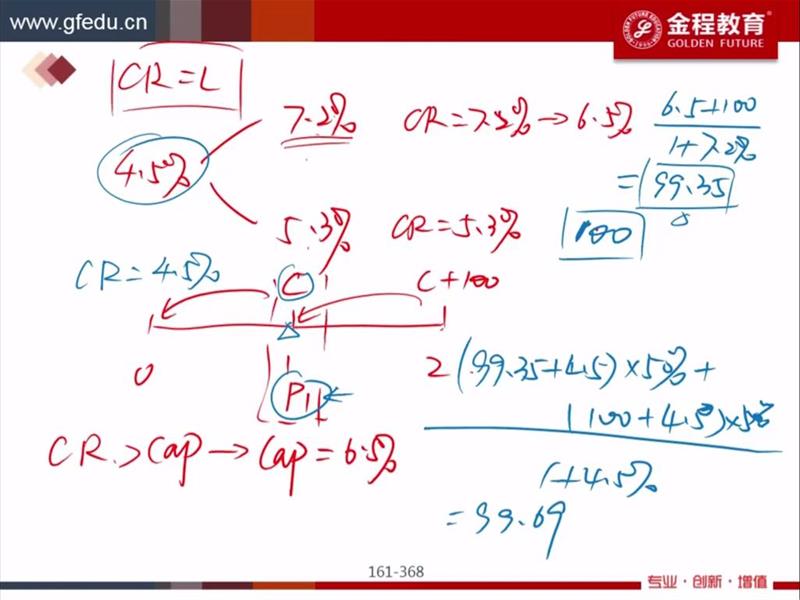 www.gfedu.cn
金程教育
GOLDEN FUTURE
CR=L
7.2% CR=7.2%→6.5% 6.5+100
1+7.2%
4.5% =99.35
5.3% CR=5.3% 100
CR=4.5% C C+100
0 P1 2
(99.35+4.5)×50%+
(100+4.5)×50%
1+4.5%
=99.69
CR>Cap→Cap=6.5%
161-368
专业·创新·增值